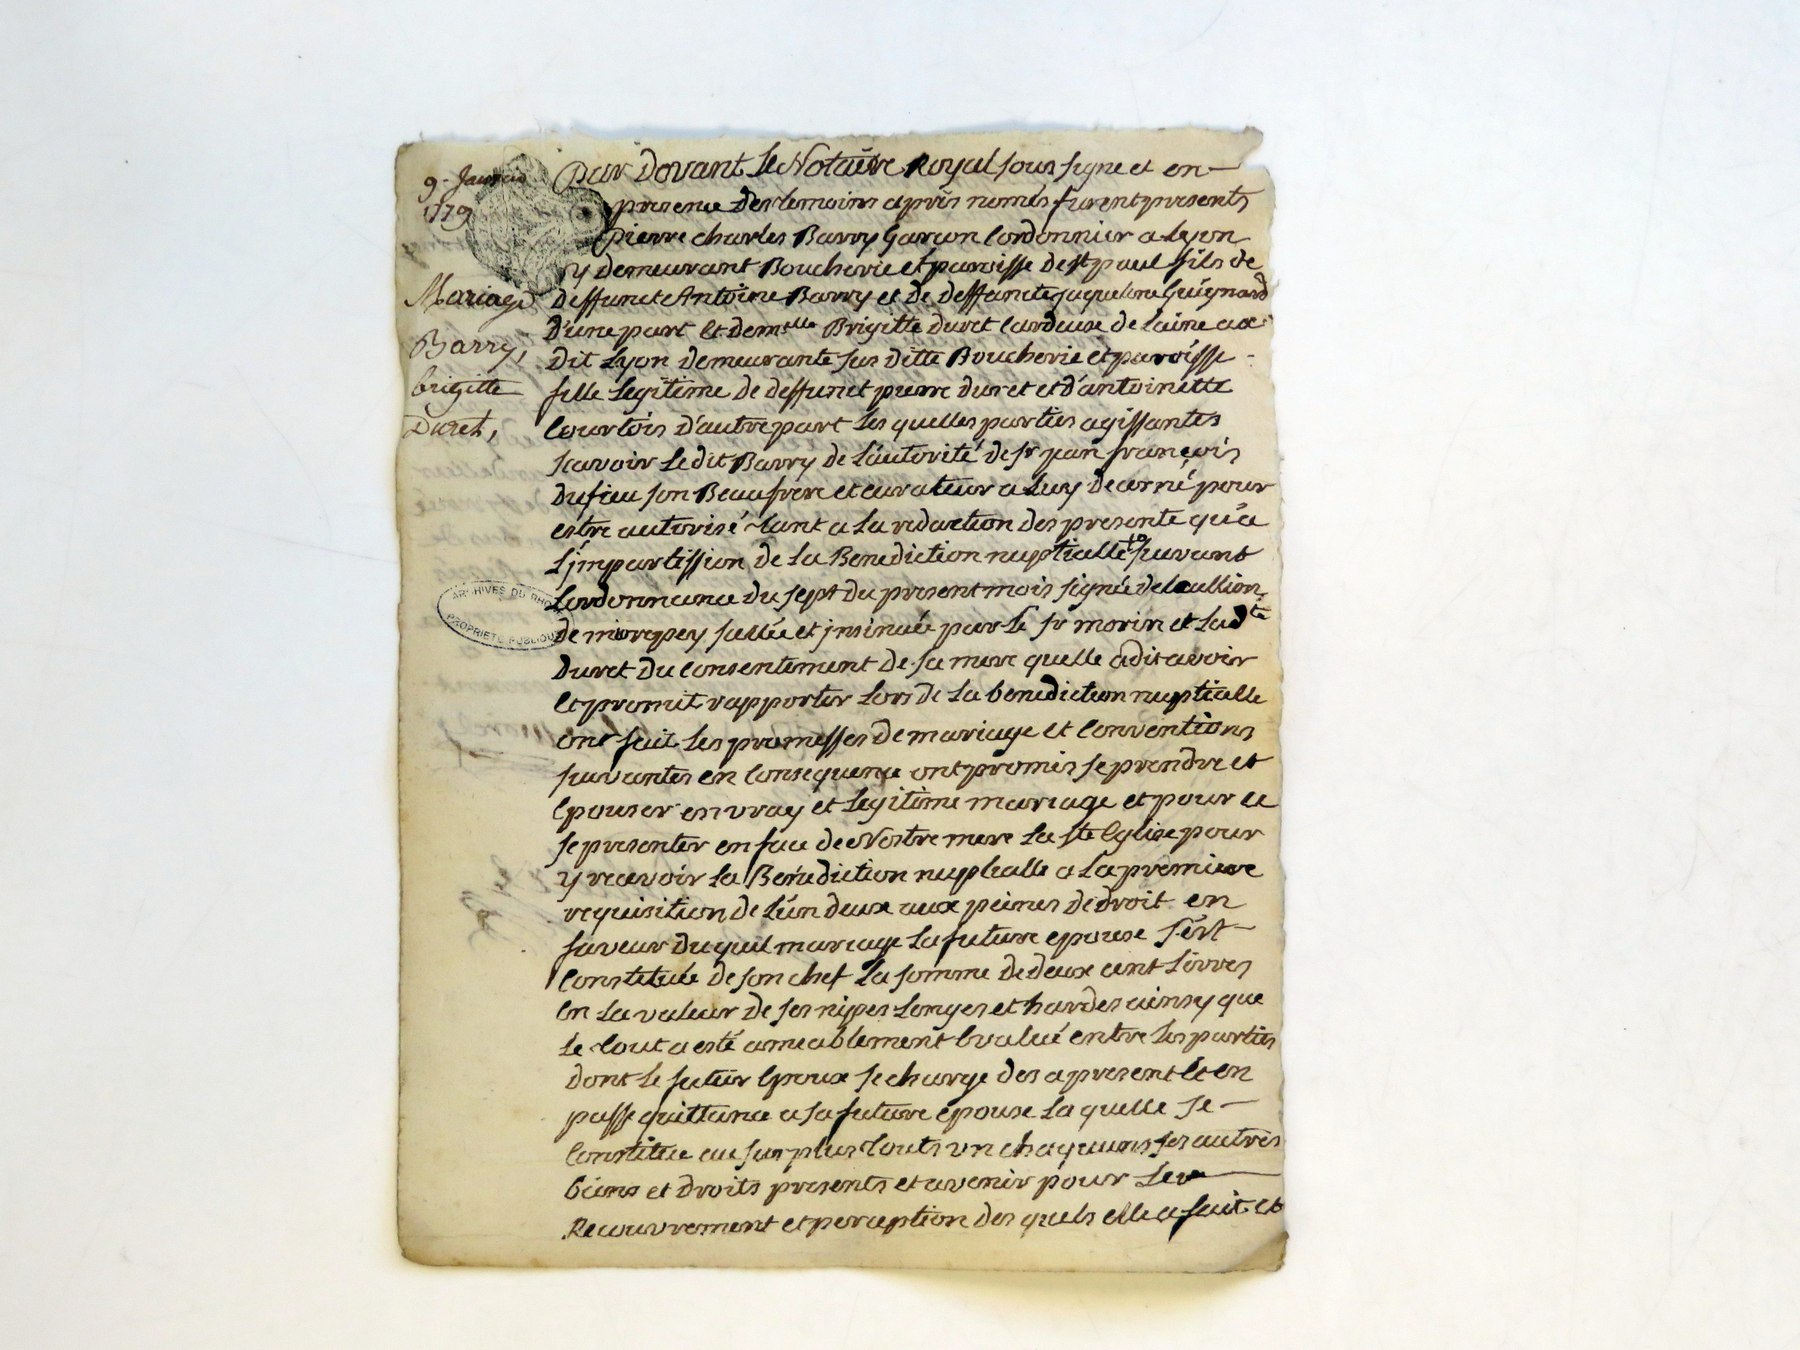 9. Janvier
1779
Mariage
Barry,
brigitte
Duret,
ARCHIVES DU RHÔNE
PROPRIÉTÉ PUBLIQUE
Par Devant Le Notaire Royal sous signé et en
presence des temoins après només furent presents
Pierre charles Barry Garçon Cordonnier a Lyon
y demeurant Boucherie et paroisse de st paul fils de
deffunct Antoine Barry et de deffuncte jaqueline Guignard
D'une part Et demslle Brigitte duret Cardeuse de Laine au
dit Lyon demeurante sus ditte Boucherie et paroisse
fille Legitime de deffunct pierre duret et d'antoinette
Courtois D'autre part Les quelles parties agissantes
scavoir Ledit Barry de L'autorité de sr jean françois
dufieu son Beaufrere et curateur a Luy decerné pour
estre autorisé tant a la redaction des presente qu'a
L'jmpartission de La Benediction nuptialle suivant
L'ordonnance du sept du present mois signée
de scellée et jnsinuée par Le sr morin et Ladte
Duret Du Consentement de sa mere quelle a dit avoir
Et promit rapporter Lors de La benediction nuptialle
ont fait Les promesses de mariage et Conventions
suivantes en Consequence ont promis se prendre et
Epouser en vray et Legitime mariage et pour ce
se presenter en face de Nostre mere La ste Eglise pour
y recevoir La Bénédiction nuptialle a La premiere
requisition de L'un deux aux peines de droit en
faveur Duquel mariage La future epouse s'est
Constituée de son chef La somme de deux cent Livres
En La valeur de ses nipes Linges et hardes ainsy que
Le tout a esté amiablement Evalué entre Les parties
dont Le futur Epoux se charge des a present Et en
passe quittance a sa future epouse La quelle se
Constitue au surplus touts un chaquuns ses autres
biens et droits presents et avenir pour Le
Recouvrement et perception des quels elle a fait et